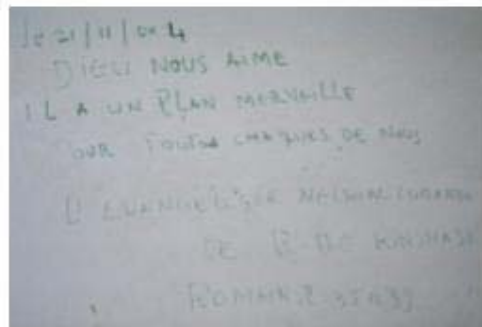 le 21/11/004
DIEU NOUS AIME
IL A UN PLAN MERVEILLE
POUR TOUTES CHAQUES DE NOUS
L'EVANGELISTE NELSON
DE KINSHASA
ROMAINS